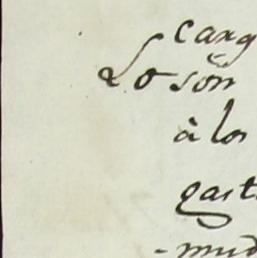 carg
Lo són
à los
gast
-mud